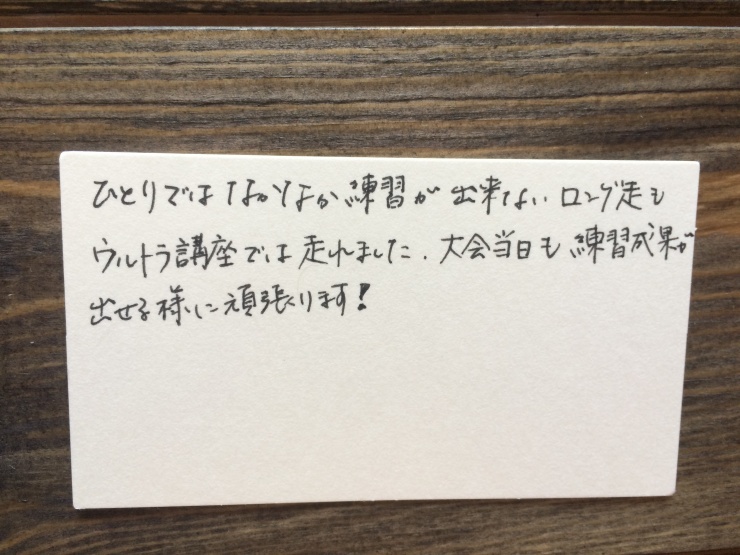 ひとりではなかなか練習が出来ないロング走も
ウルトラ講座では走れました.大会当日も練習成果が
出せる様に頑張ります!